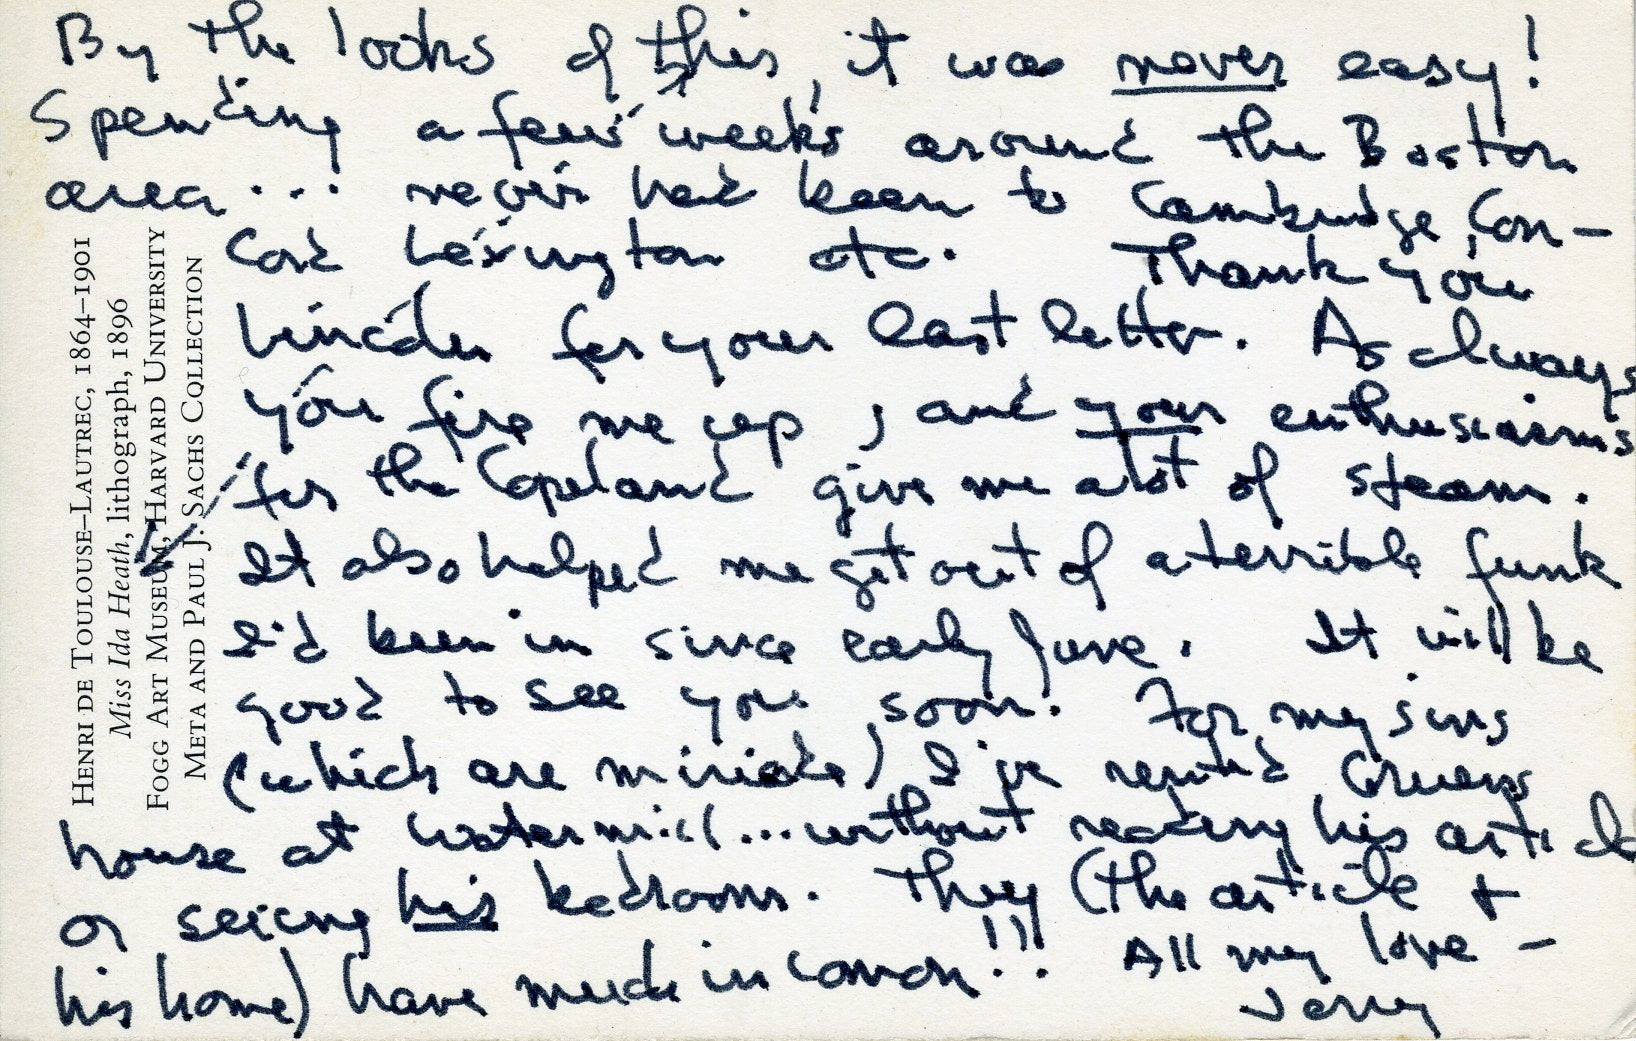 By the looks of this, it was never easy!
Spending a few weeks around the Boston
area... never had been to Cambridge, Con-
cord Lexington etc. Thank you
Lincoln for your last letter. As always
you fire me up, and your enthusiasms
for the Copeland give me alot of steam.
It also helped me get out of a terrible funk
I'd been in since early June. It will be
good to see you soon. For my sins
(which are miriade) I've rented Gruens
house at Watermill...without reading his article
or seeing his bedroom. They (the article +
his home) have much in comon!!! All my love -
Jerry
HENRI DE TOULOUSE-LAUTREC, 1864-1901
Miss Ida Heath, lithograph, 1896
FOGG ART MUSEUM, HARVARD UNIVERSITY
META AND PAUL J. SACHS COLLECTION